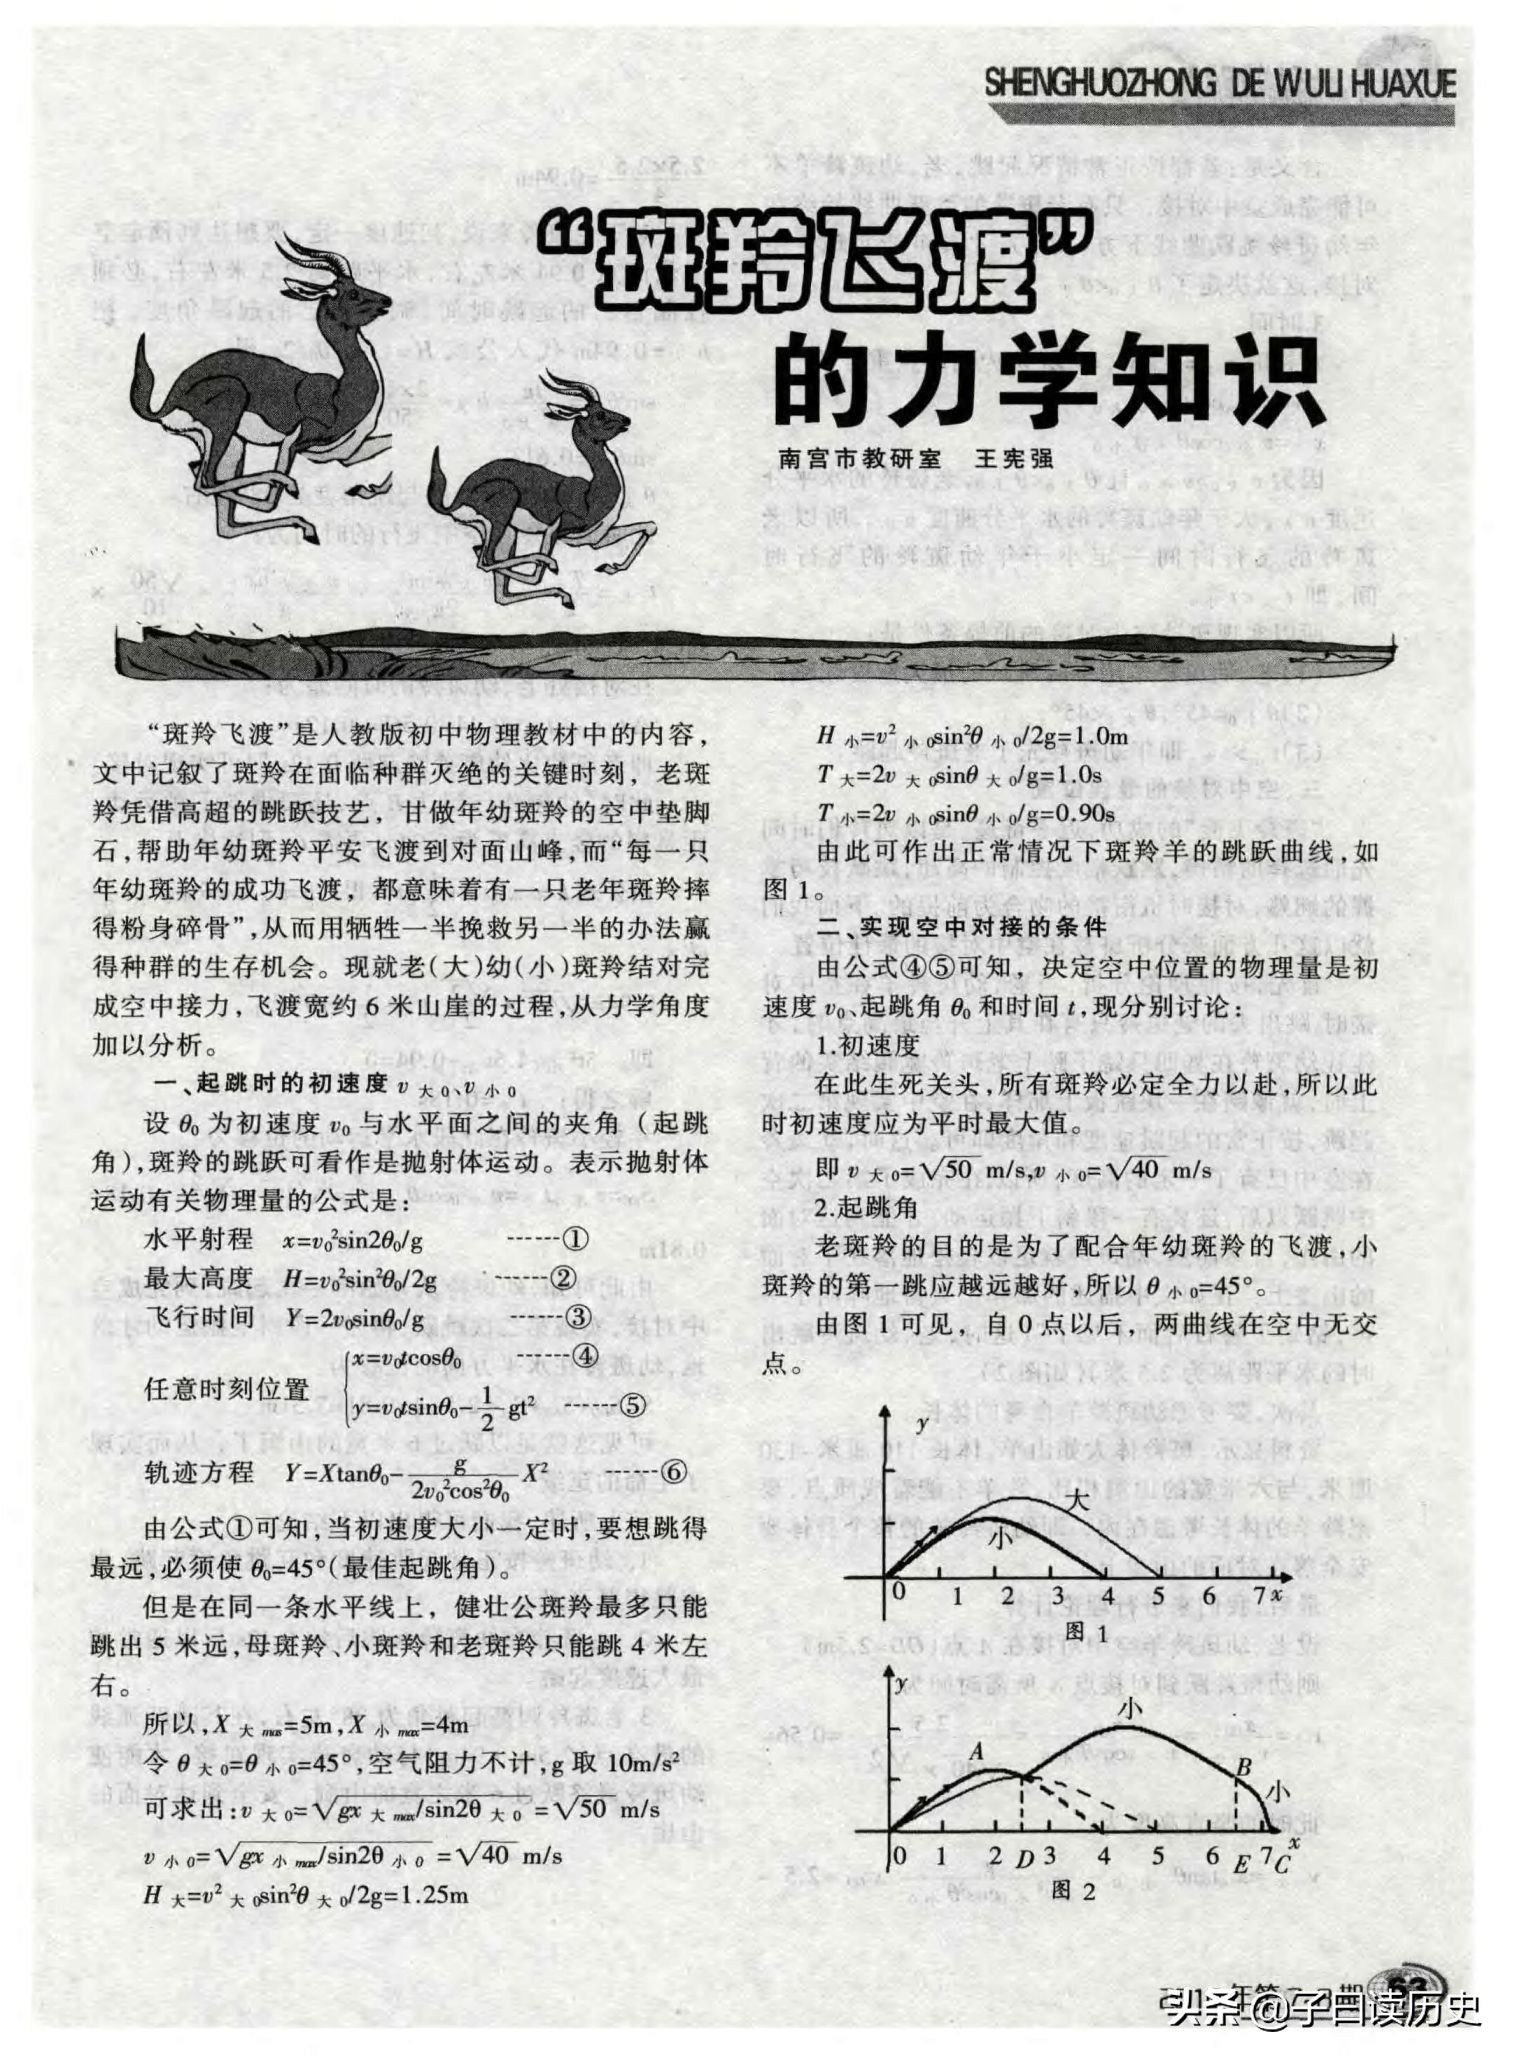 SHENGHUOZHONG DE WULI HUAXUE
“斑羚飞渡”
的力学知识
南宫市教研室 王宪强
“斑羚飞渡”是人教版初中物理教材中的内容，
文中记叙了斑羚在面临种群灭绝的关键时刻，老斑
羚凭借高超的跳跃技艺，甘做年幼斑羚的空中垫脚
石，帮助年幼斑羚平安飞渡到对面山峰，而“每一只
年幼斑羚的成功飞渡，都意味着有一只老年斑羚摔
得粉身碎骨”，从而用牺牲一半挽救另一半的办法赢
得种群的生存机会。现就老(大)幼(小)斑羚结对完
成空中接力，飞渡宽约 6 米山崖的过程，从力学角度
加以分析。
一、起跳时的初速度 v大0、v小0
设 θ₀ 为初速度 v₀ 与水平面之间的夹角（起跳
角），斑羚的跳跃可看作是抛射体运动。表示抛射体
运动有关物理量的公式是：
水平射程 x=v₀²sin2θ₀/g ------①
最大高度 H=v₀²sin²θ₀/2g ------②
飞行时间 Y=2v₀sinθ₀/g ------③
任意时刻位置 x=v₀tcosθ₀ ------④
y=v₀tsinθ₀-1/2 gt² ------⑤
轨迹方程 Y=Xtanθ₀-g/2v₀²cos²θ₀ X² ------⑥
由公式①可知，当初速度大小一定时，要想跳得
最远，必须使 θ₀=45°(最佳起跳角)。
但是在同一条水平线上，健壮公斑羚最多只能
跳出 5 米远，母斑羚、小斑羚和老斑羚只能跳 4 米左
右。
所以，X大max=5m，X小max=4m
令 θ大0=θ小0=45°，空气阻力不计，g 取 10m/s²
可求出：v大0=√gx大max/sin2θ大0 =√50 m/s
v小0=√gx小max/sin2θ小0 =√40 m/s
H大=v²大0sin²θ大0/2g=1.25m
H小=v²小0sin²θ小0/2g=1.0m
T大=2v大0sinθ大0/g=1.0s
T小=2v小0sinθ小0/g=0.90s
由此可作出正常情况下斑羚羊的跳跃曲线，如
图 1。
二、实现空中对接的条件
由公式④⑤可知，决定空中位置的物理量是初
速度 v₀、起跳角 θ₀ 和时间 t，现分别讨论：
1.初速度
在此生死关头，所有斑羚必定全力以赴，所以此
时初速度应为平时最大值。
即 v大0=√50 m/s,v小0=√40 m/s
2.起跳角
老斑羚的目的是为了配合年幼斑羚的飞渡，小
斑羚的第一跳应越远越好，所以 θ小0=45°。
由图 1 可见，自 0 点以后，两曲线在空中无交
点。
y
大
小
0 1 2 3 4 5 6 7 x
图 1
y
小
A
B
小
0 1 2 D 3 4 5 6 E 7 C x
图 2
63
头条 @子曰读历史